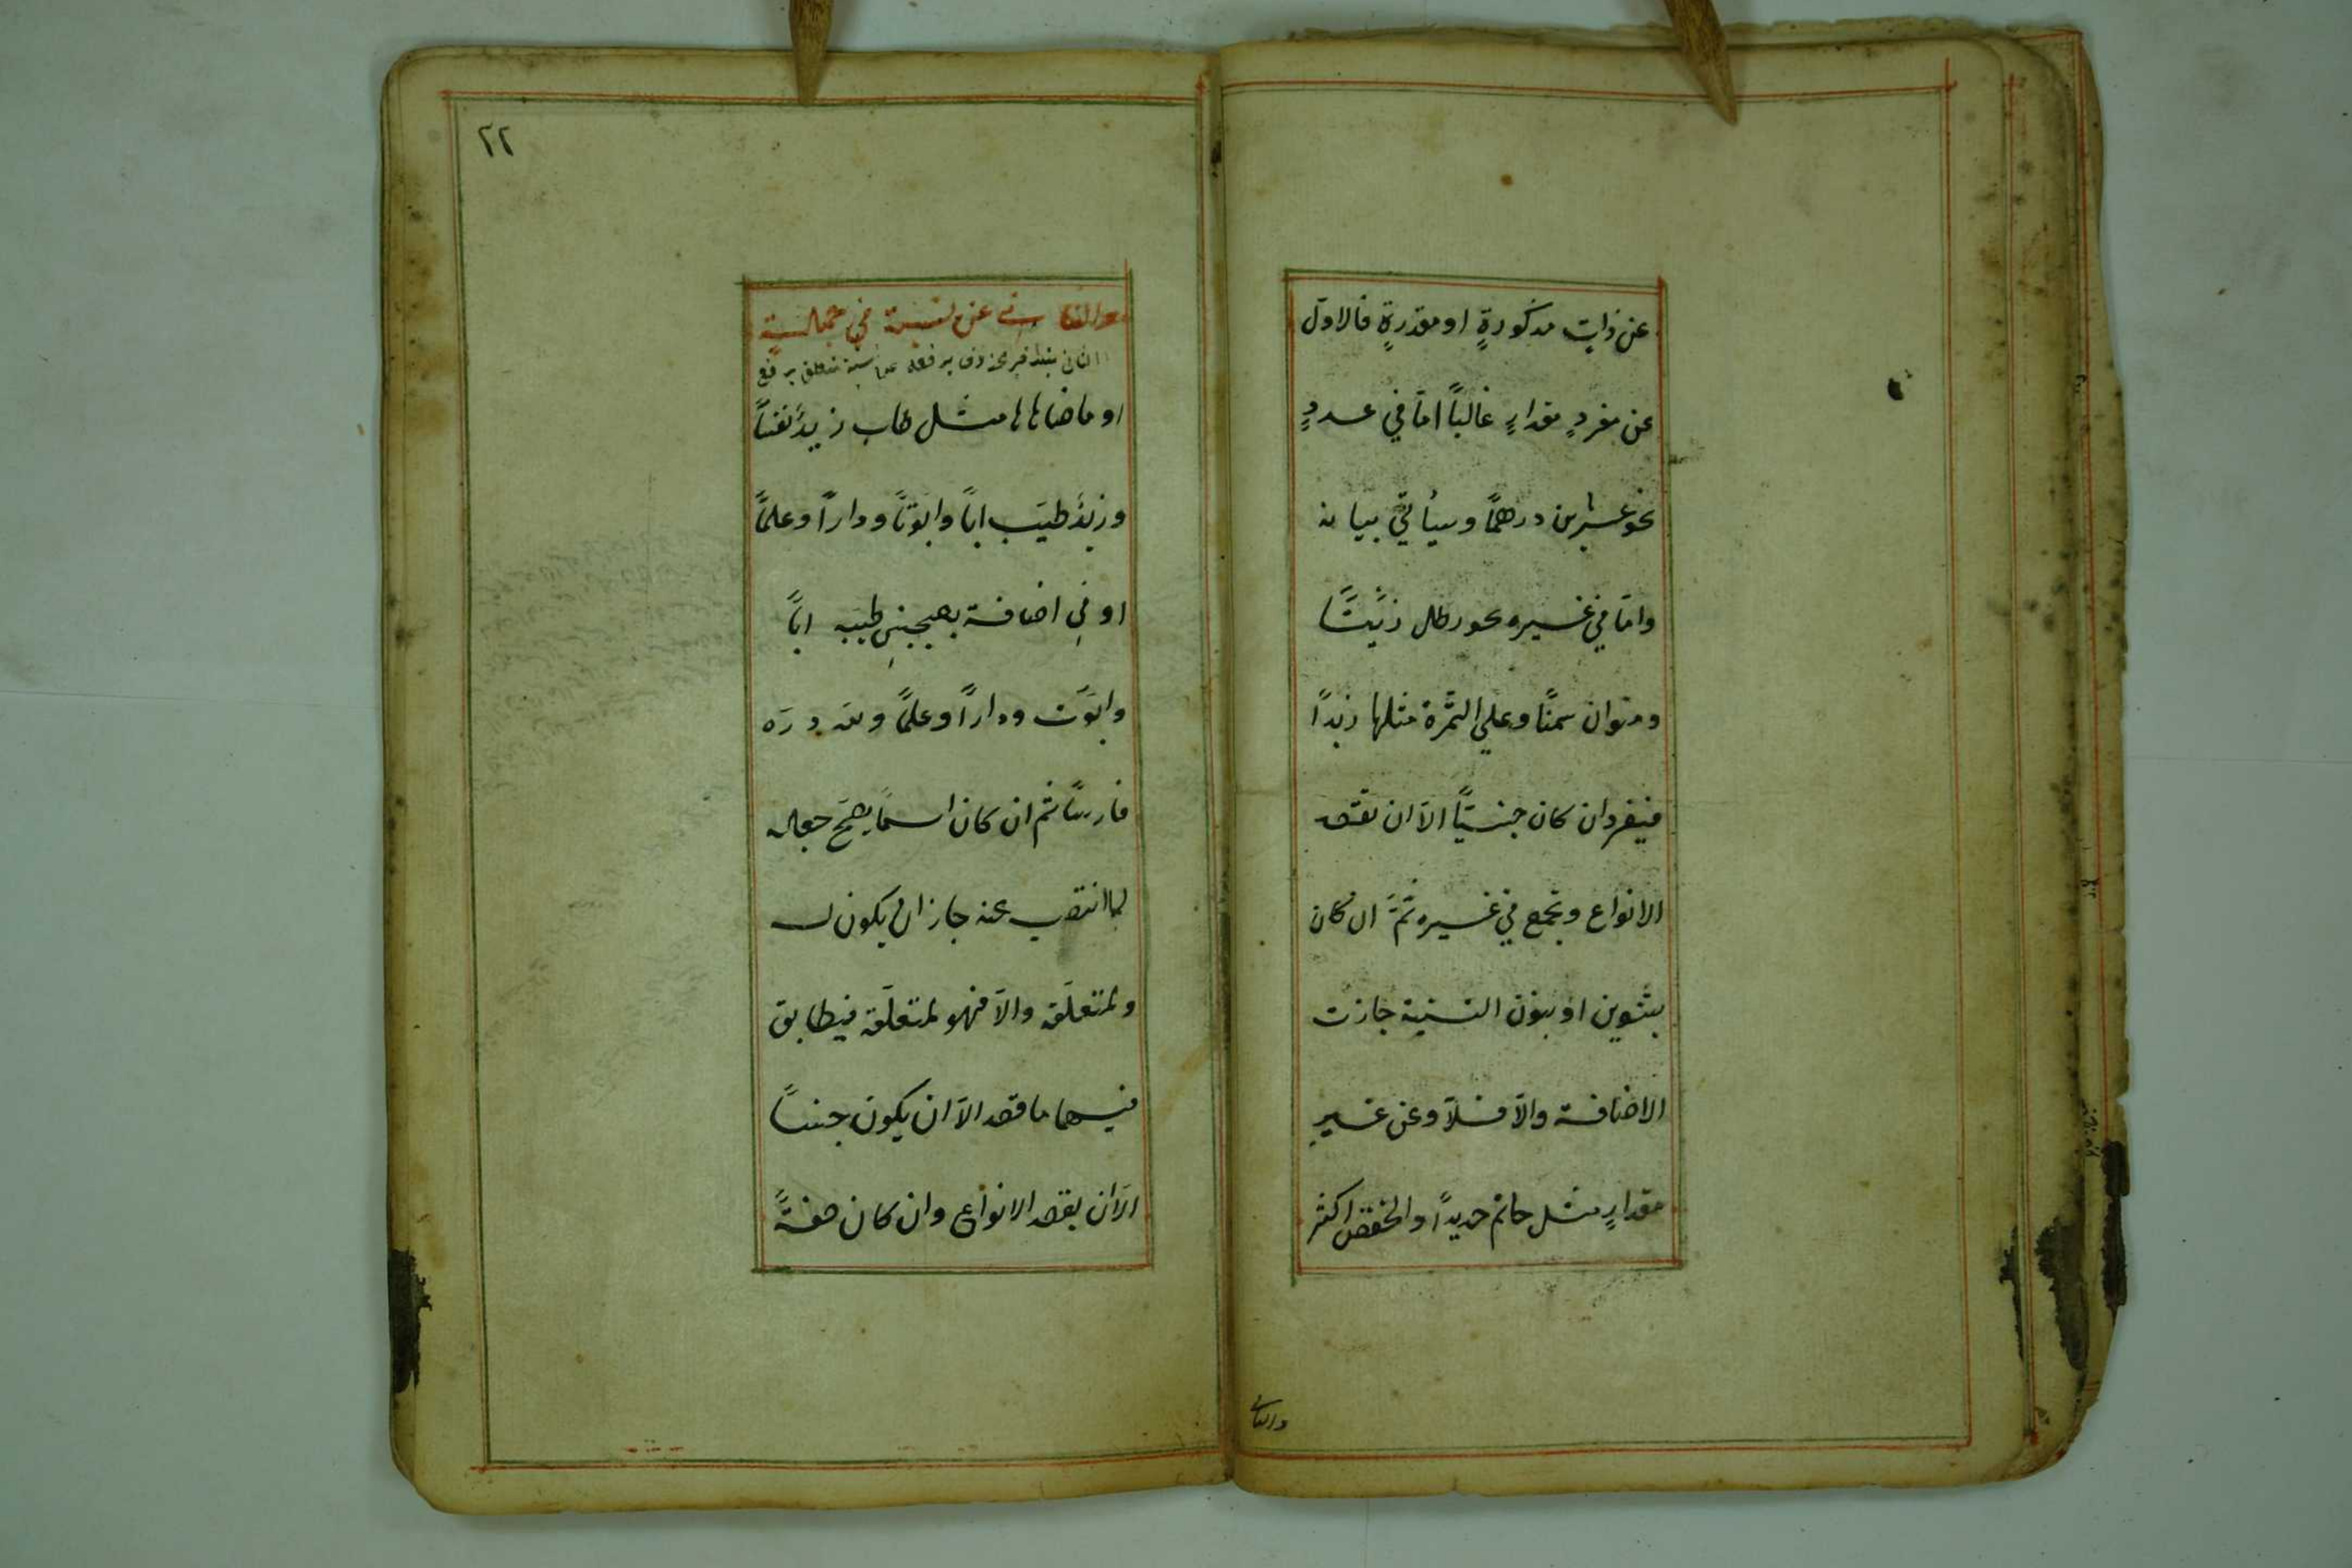 عن ذاتٍ مذكورةٍ او مقدرةٍ فالاوّل
عن مفردٍ مقدارٍ غالباً امّا في عددٍ
نحو عشرين درهمًا وسيأتي بيانه
وامّا في غيره نحو رطل زيتًا
ومنوان سمنًا وعلي التمرة مثلها زبدًا
فيفرد ان كان جنسيًّا الاّ ان نقصد
الانواع ويجمع في غيره ثمّ ان كان
بتنوين او بنون التثنية جازت
الاضافة والاّ فلا وعن غيرِ
مقدارٍ مثل خاتم حديداً والخفض اكثر
والثاني
٢٢
والثاني عن نسبة في جملة
او ما ضاهاها مثل طاب زيدٌ نفساً
وزيدٌ طيّب اباً وابوّتاً وداراً وعلماً
او في اضافة يعجبني طيبه اباً
وابوّت وداراً وعلماً ولله درّه
فارسًا ثم ان كان اسمًا يصحّ جعله
لما انتصب عنه جاز ان يكون له
ولمتعلّقه والاّ فهو لمتعلّقه فيطابق
فيهما ما قصد الاّ ان يكون جنساً
الاّ ان يقصد الانواع وان كان صفةً